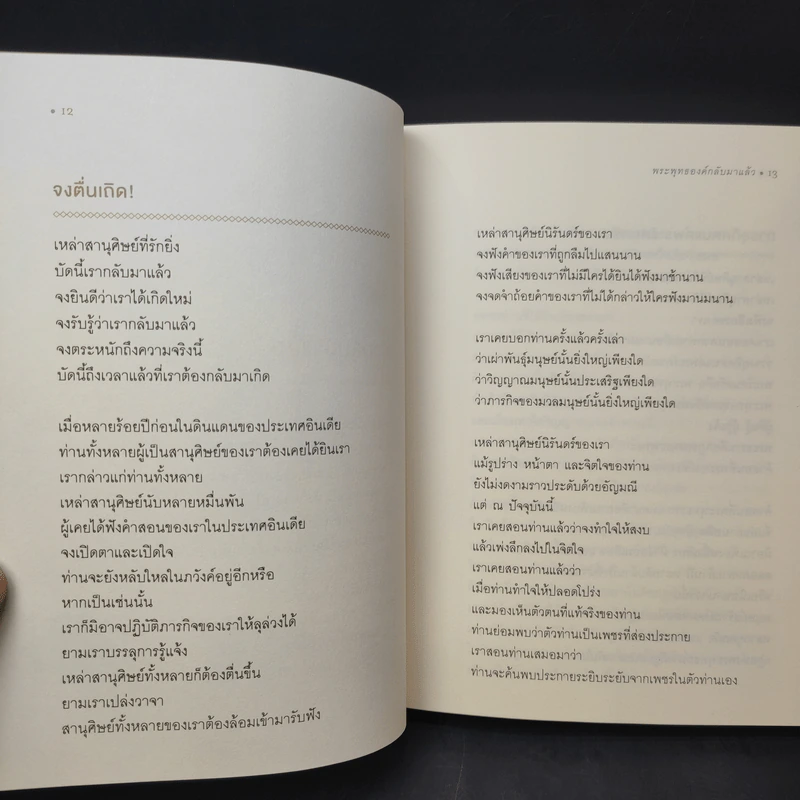 • 12
จงตื่นเถิด!
เหล่าสานุศิษย์ที่รักยิ่ง
บัดนี้เรากลับมาแล้ว
จงยินดีว่าเราได้เกิดใหม่
จงรับรู้ว่าเรากลับมาแล้ว
จงตระหนักถึงความจริงนี้
บัดนี้ถึงเวลาแล้วที่เราต้องกลับมาเกิด
เมื่อหลายร้อยปีก่อนในดินแดนของประเทศอินเดีย
ท่านทั้งหลายผู้เป็นสานุศิษย์ของเราต้องเคยได้ยินเรา
เรากล่าวแก่ท่านทั้งหลาย
เหล่าสานุศิษย์นับหลายหมื่นพัน
ผู้เคยได้ฟังคำสอนของเราในประเทศอินเดีย
จงเปิดตาและเปิดใจ
ท่านจะยังหลับใหลในภวังค์อยู่อีกหรือ
หากเป็นเช่นนั้น
เราก็มิอาจปฏิบัติภารกิจของเราให้ลุล่วงได้
ยามเราบรรลุการรู้แจ้ง
เหล่าสานุศิษย์ทั้งหลายก็ต้องตื่นขึ้น
ยามเราเปล่งวาจา
สานุศิษย์ทั้งหลายของเราต้องล้อมเข้ามารับฟัง
พระพุทธองค์กลับมาแล้ว • 13
เหล่าสานุศิษย์นิรันดร์ของเรา
จงฟังคำของเราที่ถูกลืมไปแสนนาน
จงฟังเสียงของเราที่ไม่มีใครได้ยินได้ฟังมาช้านาน
จงจดจำถ้อยคำของเราที่ไม่ได้กล่าวให้ใครฟังมานมนาน
เราเคยบอกท่านครั้งแล้วครั้งเล่า
ว่าเผ่าพันธุ์มนุษย์นั้นยิ่งใหญ่เพียงใด
ว่าวิญญาณมนุษย์นั้นประเสริฐเพียงใด
ว่าภารกิจของมวลมนุษย์นั้นยิ่งใหญ่เพียงใด
เหล่าสานุศิษย์นิรันดร์ของเรา
แม้รูปร่าง หน้าตา และจิตใจของท่าน
ยังไม่งดงามราวประดับด้วยอัญมณี
แต่ ณ ปัจจุบันนี้
เราเคยสอนท่านแล้วว่าจงทำใจให้สงบ
แล้วเพ่งลึกลงไปในจิตใจ
เราเคยสอนท่านแล้วว่า
เมื่อท่านทำใจให้ปลอดโปร่ง
และมองเห็นตัวตนที่แท้จริงของท่าน
ท่านย่อมพบว่าตัวท่านเป็นเพชรที่ส่องประกาย
เราสอนท่านเสมอมาว่า
ท่านจะค้นพบประกายระยิบระยับจากเพชรในตัวท่านเอง